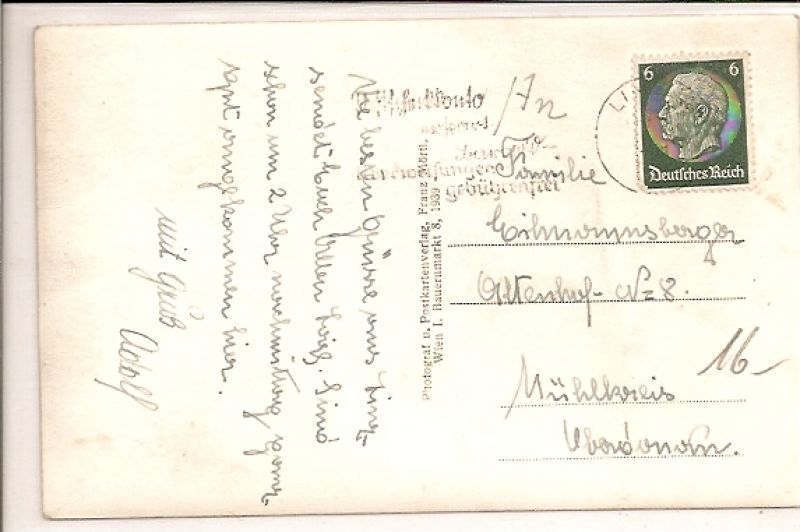 Die besten Grüsse aus Linz
sendet Euch allen Sind
schon um 2 Uhr nachmittag ganz
gut angekommen hier.
mit Gruß
Adolf
Photograf u. Postkartenverlag, Franz Mörtl,
Wien I. Bauernmarkt 8, 1939
erspart
gebührenfrei
6 6
Deutsches Reich
An
Familie
Altenhof N=8.
16-
Mühlkreis
Oberdonau.